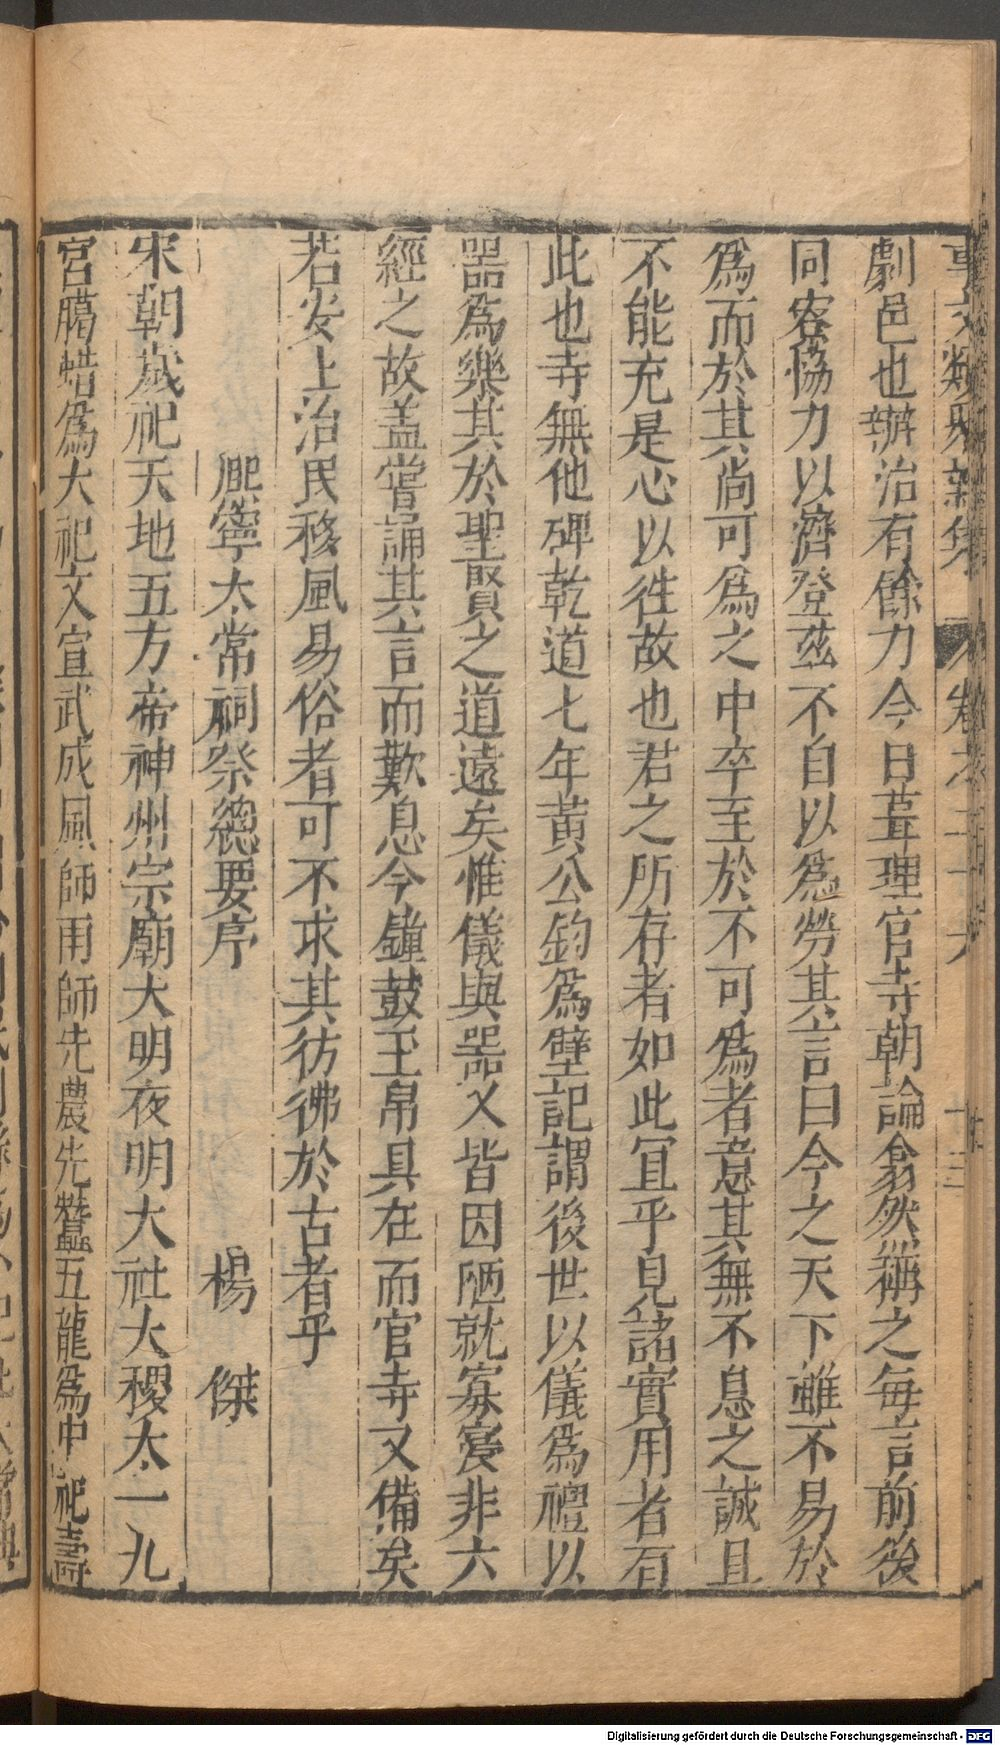 事文類聚新集 卷之三十六
劇邑也辦治有餘力今日葺理官寺朝論翕然稱之每言前後
同寮恊力以濟登茲不自以爲勞其言曰今之天下雖不易於
爲而於其尚可爲之中卒至於不可爲者意其無不息之誠且
不能充是心以徃故也君之所存者如此冝乎見諸實用者有
此也寺無他碑乾道七年黃公鈞爲壁記謂後世以儀爲禮以
器爲樂其於聖賢之道遠矣惟儀與器又皆因陋就寡寔非六
經之故盖嘗誦其言而歎息今鐘鼓玉帛具在而官寺又備矣
若安上治民移風易俗者可不求其彷彿於古者乎
熈寧太常祠祭緫要序
楊 傑
宋朝歲祀天地五方帝神州宗廟大明夜明大社大稷太一九
宮臈蜡爲大祀文宣武成風師雨師先農先蠶五龍爲中祀壽
Digitalisierung gefördert durch die Deutsche Forschungsgemeinschaft - DFG